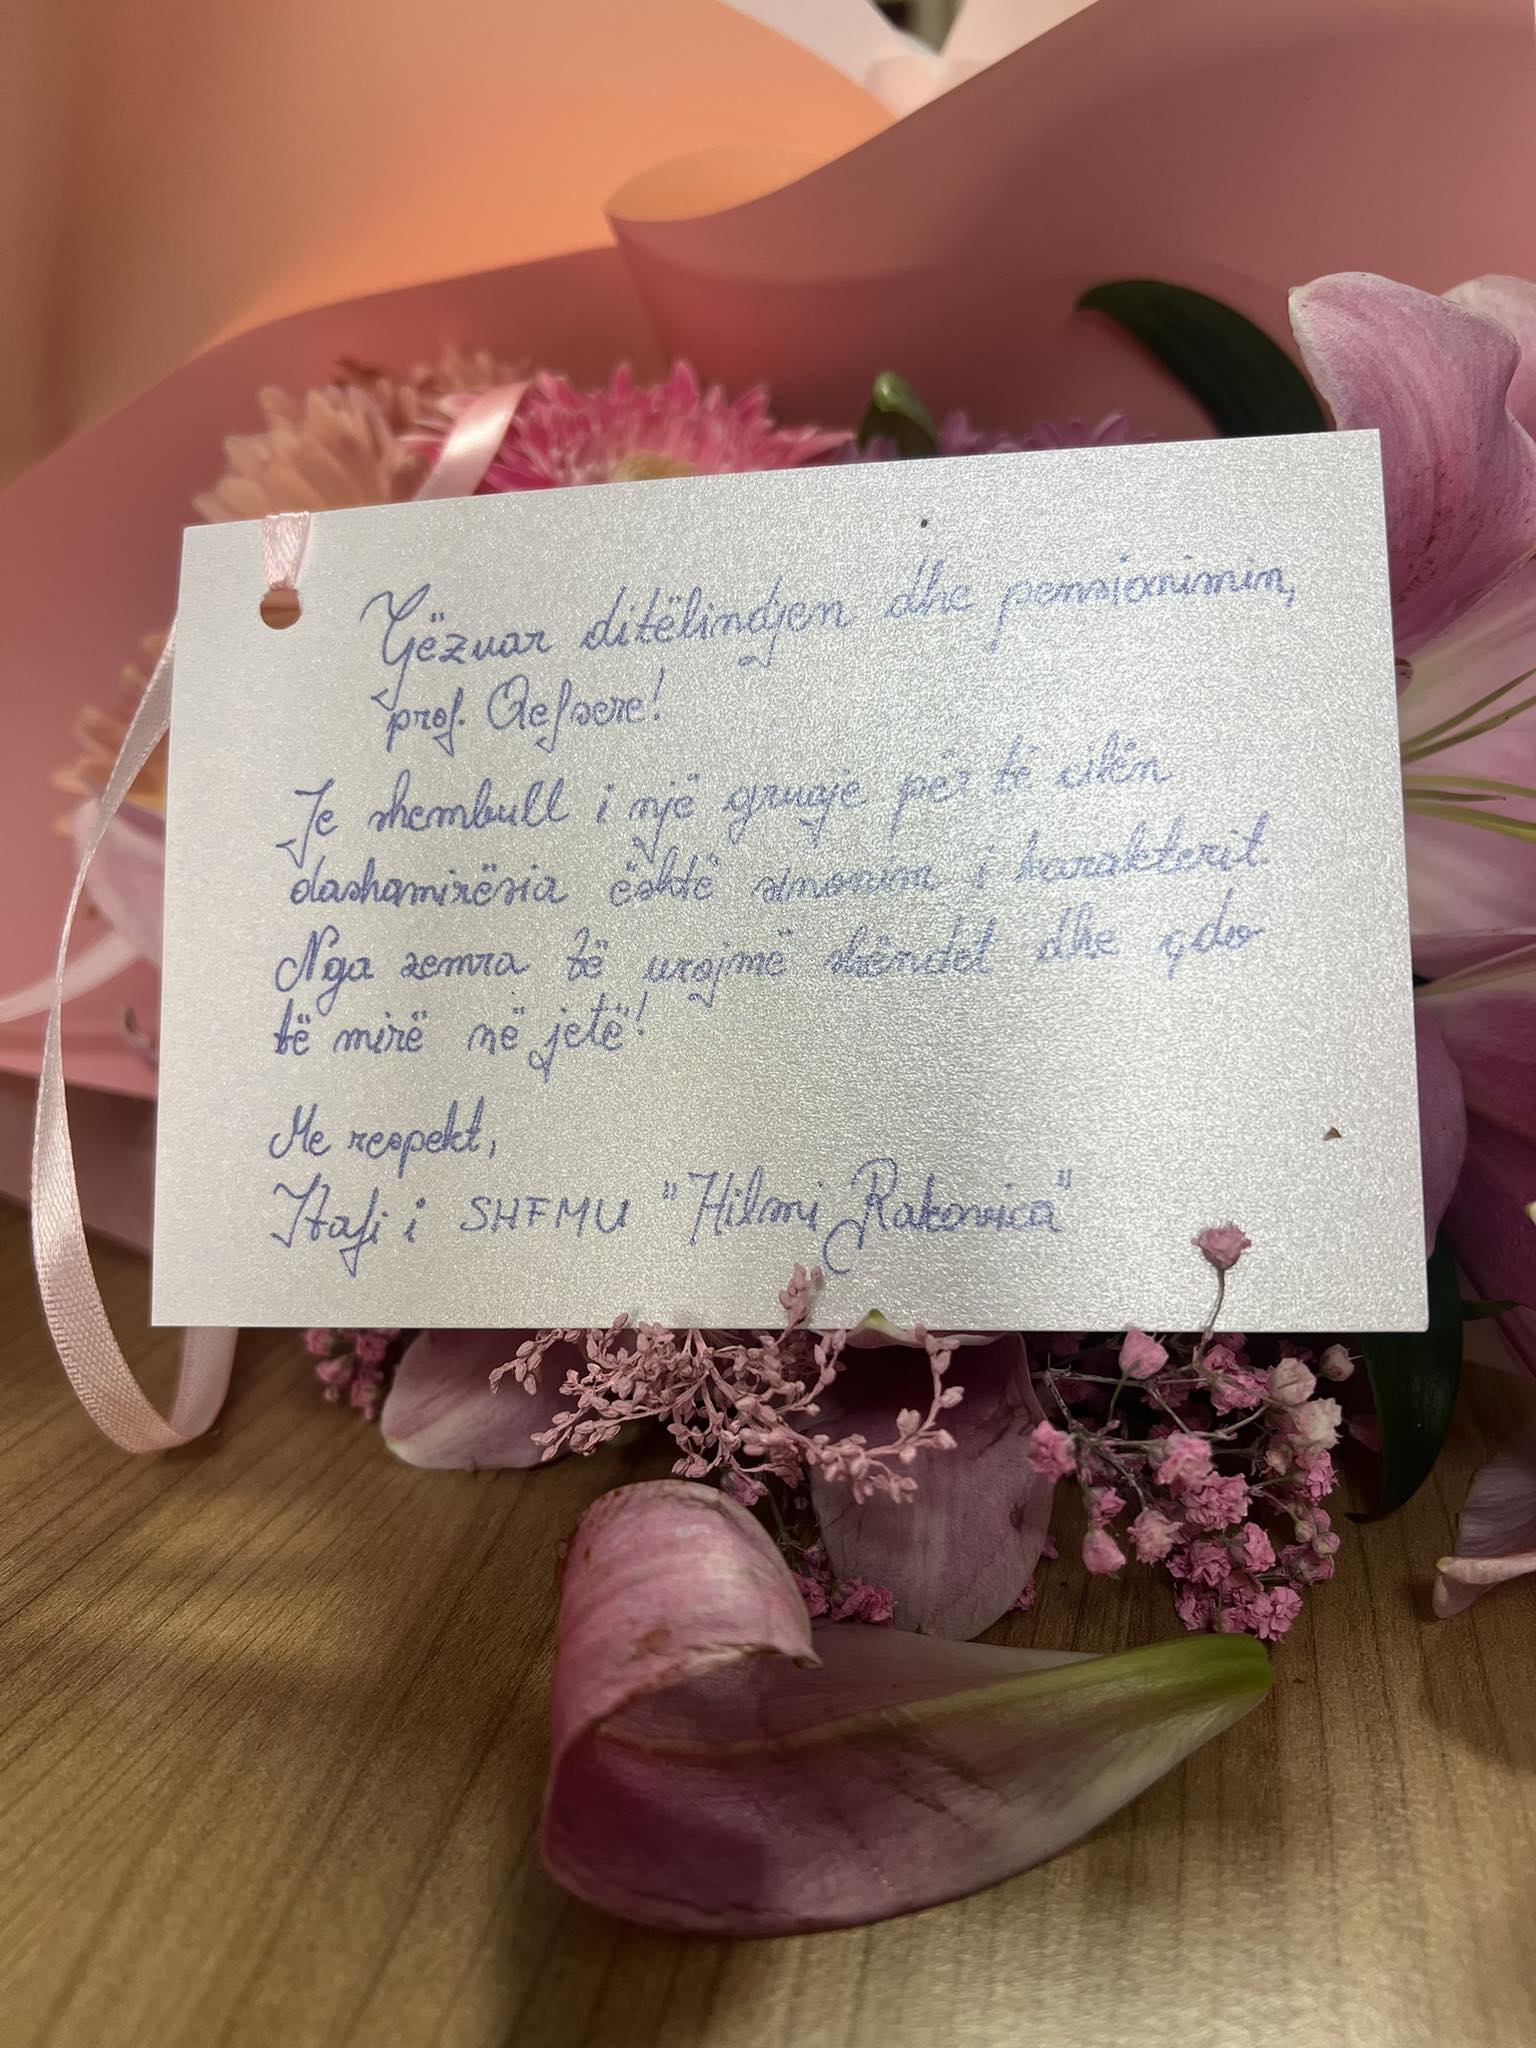 Gëzuar ditëlindjen dhe pensionimin,
prof. Qefsere!
Je shembull i një gruaje për të cilën
dashamirësia është sinonim i karakterit.
Nga zemra të urojmë shëndet dhe çdo
të mirë në jetë!
Me respekt,
Stafi i SHFMU "Hilmi Rakovica"